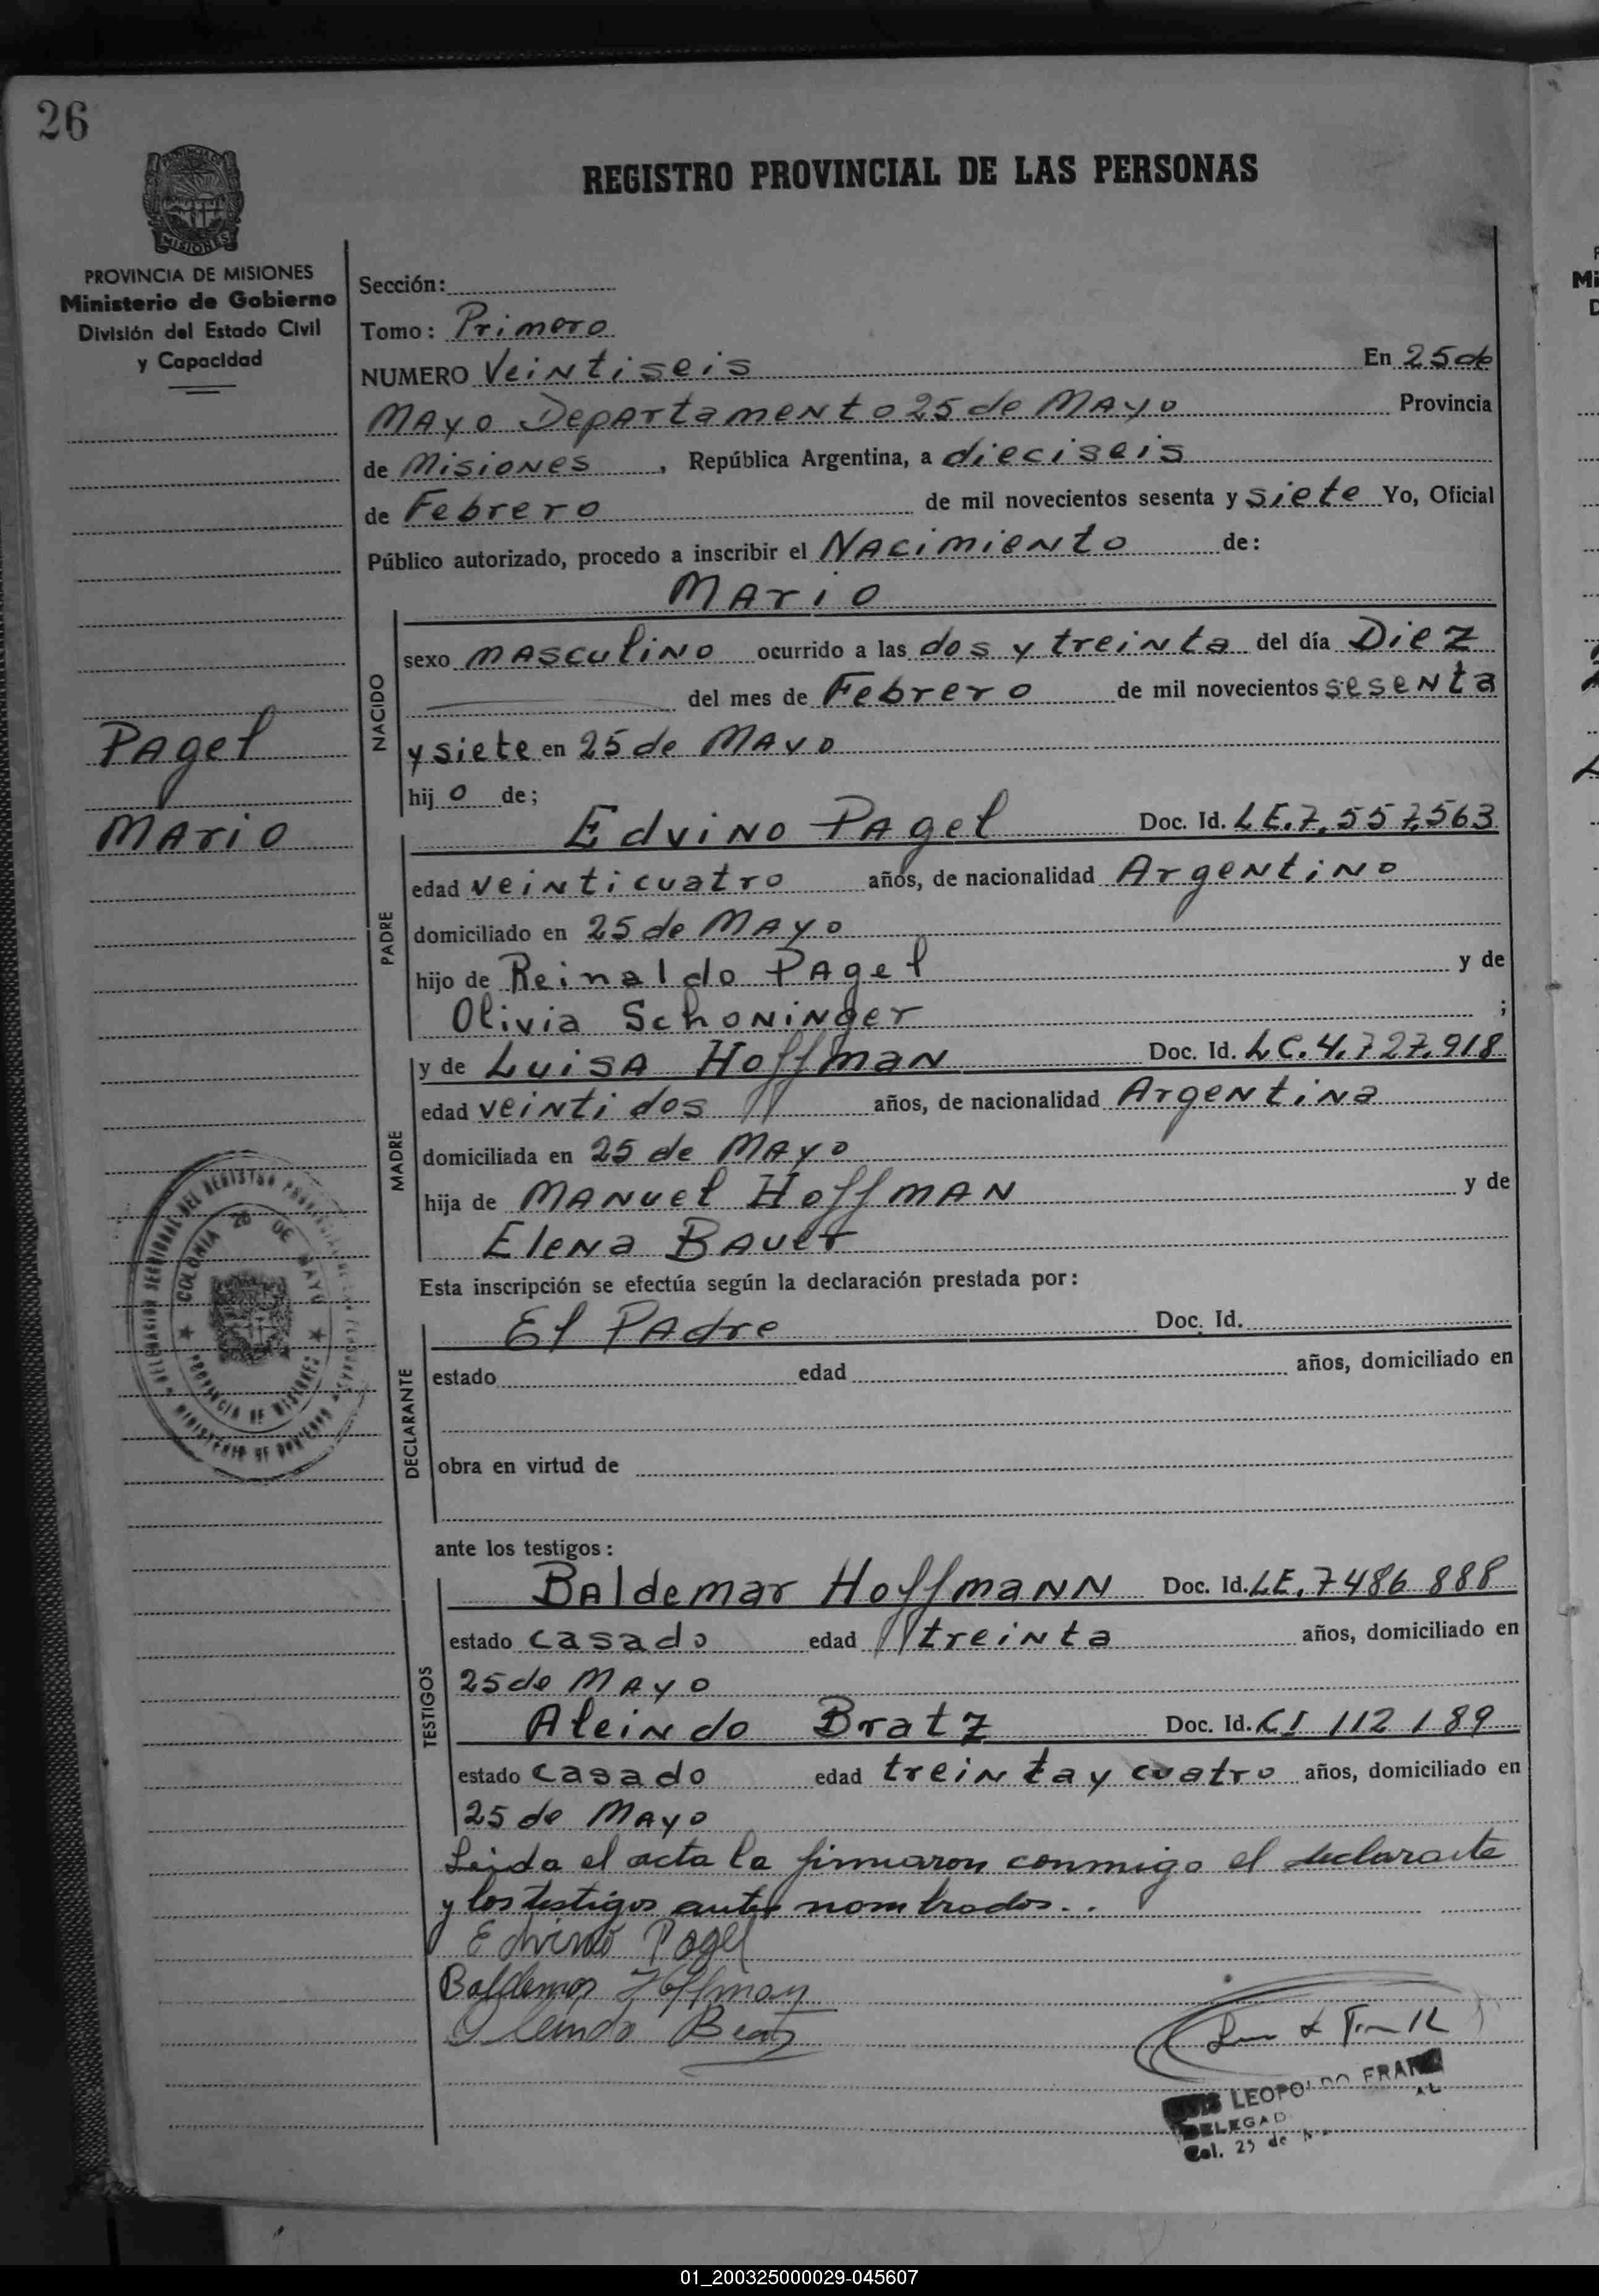 26
REGISTRO PROVINCIAL DE LAS PERSONAS
MISIONES
PROVINCIA DE MISIONES
Ministerio de Gobierno
División del Estado Civil
y Capacidad
Sección:
Tomo: Primero
NUMERO Veintiseis En 25 de
Mayo Departamento 25 de Mayo Provincia
de Misiones, República Argentina, a dieciseis
de Febrero de mil novecientos sesenta y siete Yo, Oficial
Público autorizado, procedo a inscribir el Nacimiento de:
Mario
NACIDO
sexo masculino ocurrido a las dos y treinta del día Diez
del mes de Febrero de mil novecientos sesenta
y siete en 25 de Mayo
hijo de;
Pagel
Mario
PADRE
Edvino Pagel Doc. Id. LE. 7.557.563
edad veinticuatro años, de nacionalidad Argentino
domiciliado en 25 de Mayo
hijo de Reinaldo Pagel y de
Olivia Schoninger ;
MADRE
y de Luisa Hoffman Doc. Id. LC. 4.727.918
edad veintidos años, de nacionalidad Argentina
domiciliada en 25 de Mayo
hija de Manuel Hoffman y de
Elena Bauer
Esta inscripción se efectúa según la declaración prestada por:
DECLARANTE
El Padre Doc. Id.
estado edad años, domiciliado en
obra en virtud de
ante los testigos:
TESTIGOS
Baldemar Hoffmann Doc. Id. LE. 7486 888
estado casado edad treinta años, domiciliado en
25 de Mayo
Aleindo Bratz Doc. Id. CI 112 189
estado casado edad treinta y cuatro años, domiciliado en
25 de Mayo
Leida el acta la firmaron conmigo el declarante
y los testigos antes nombrados..
Edvino Pagel
Baldemar Hoffman
COLONIA 25 DE MAYO
PROVINCIA DE MISIONES
LEOPOLDO FRAN
DELEGAD
Col. 25 de
01_200325000029-045607